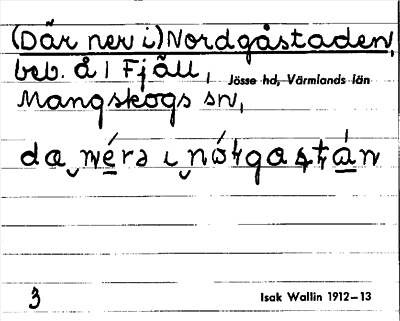 (Där ner i) Nordgåstaden,
beb. å 1 Fjäll,
Jösse hd, Värmlands län
Mangskogs sn,
3
Isak Wallin 1912–13